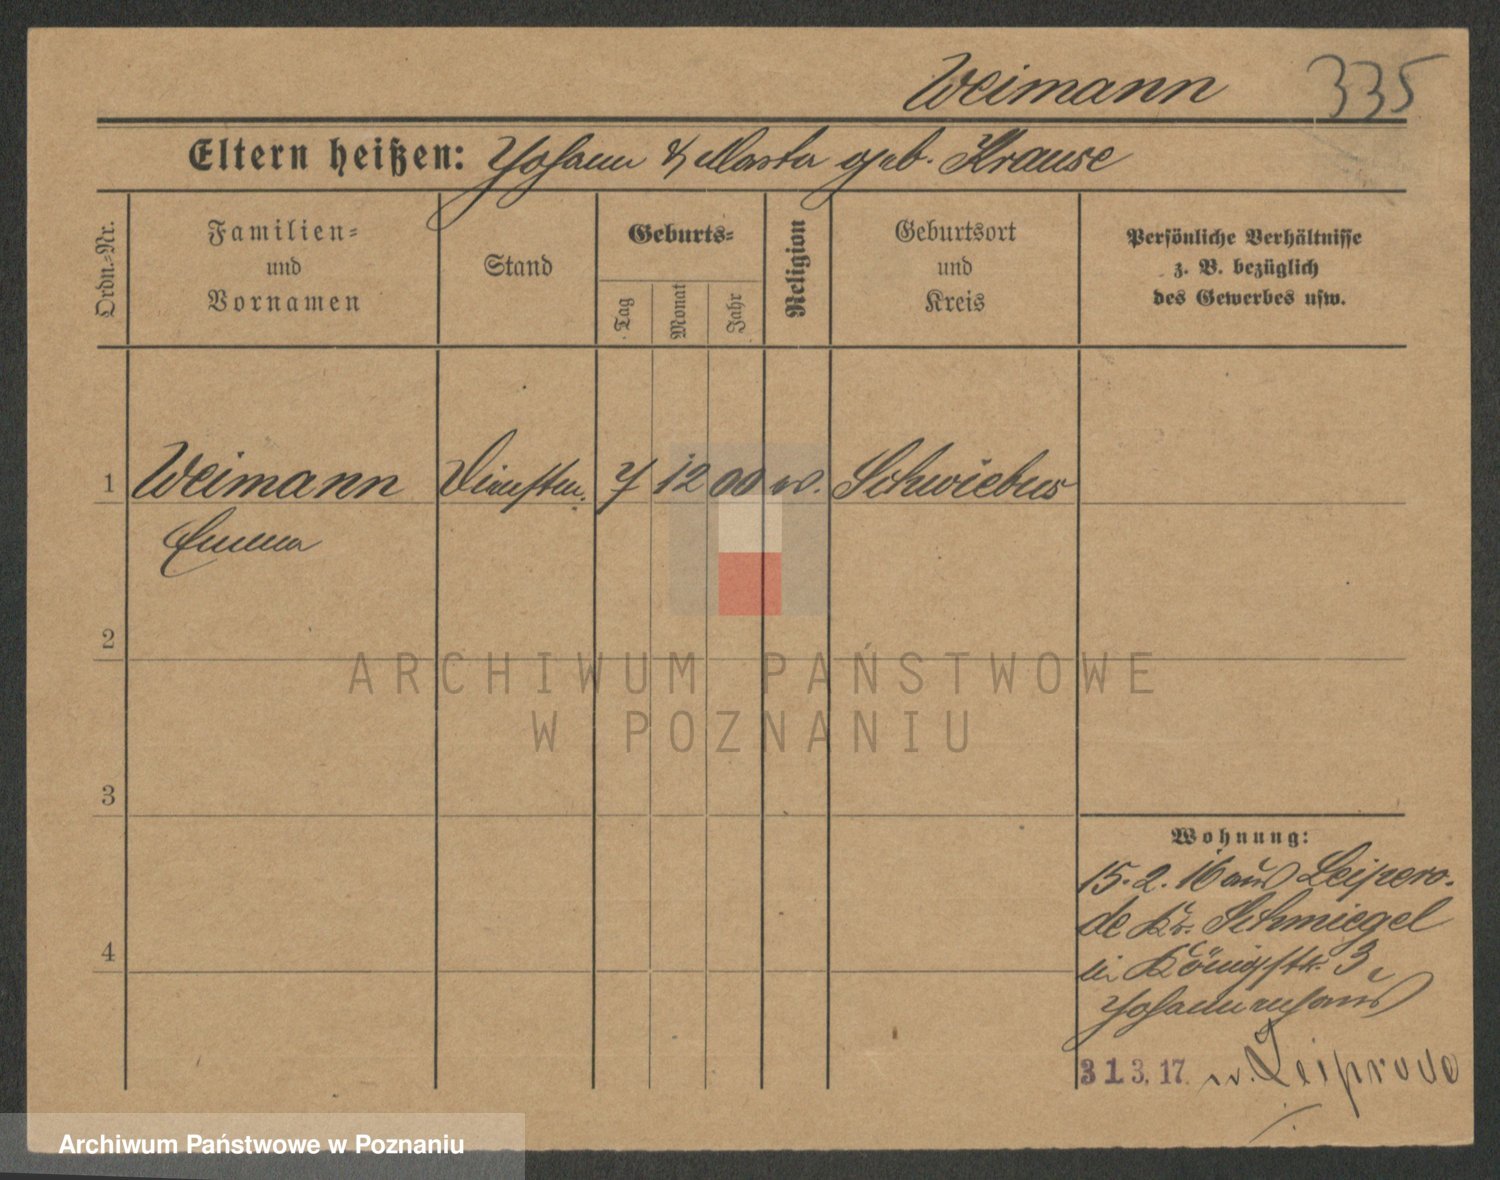 Weimann 335
Eltern heißen: Johann & Marta geb. Krause
Ordn.-Nr.
Familien-
und
Vornamen
Stand
Geburts-
Tag
Monat
Jahr
Religion
Geburtsort
und
Kreis
Persönliche Verhältnisse
z. B. bezüglich
des Gewerbes usw.
1 Weimann 7 12 00 Schwiebus
Emma
2
3
4
Wohnung:
15.2.16 aus Leipero-
de Kr. Schmiegel
in Königstr. 3
Johannenhaus
31.3.17. n. Leiprode
ARCHIWUM PAŃSTWOWE
W POZNANIU
Archiwum Państwowe w Poznaniu